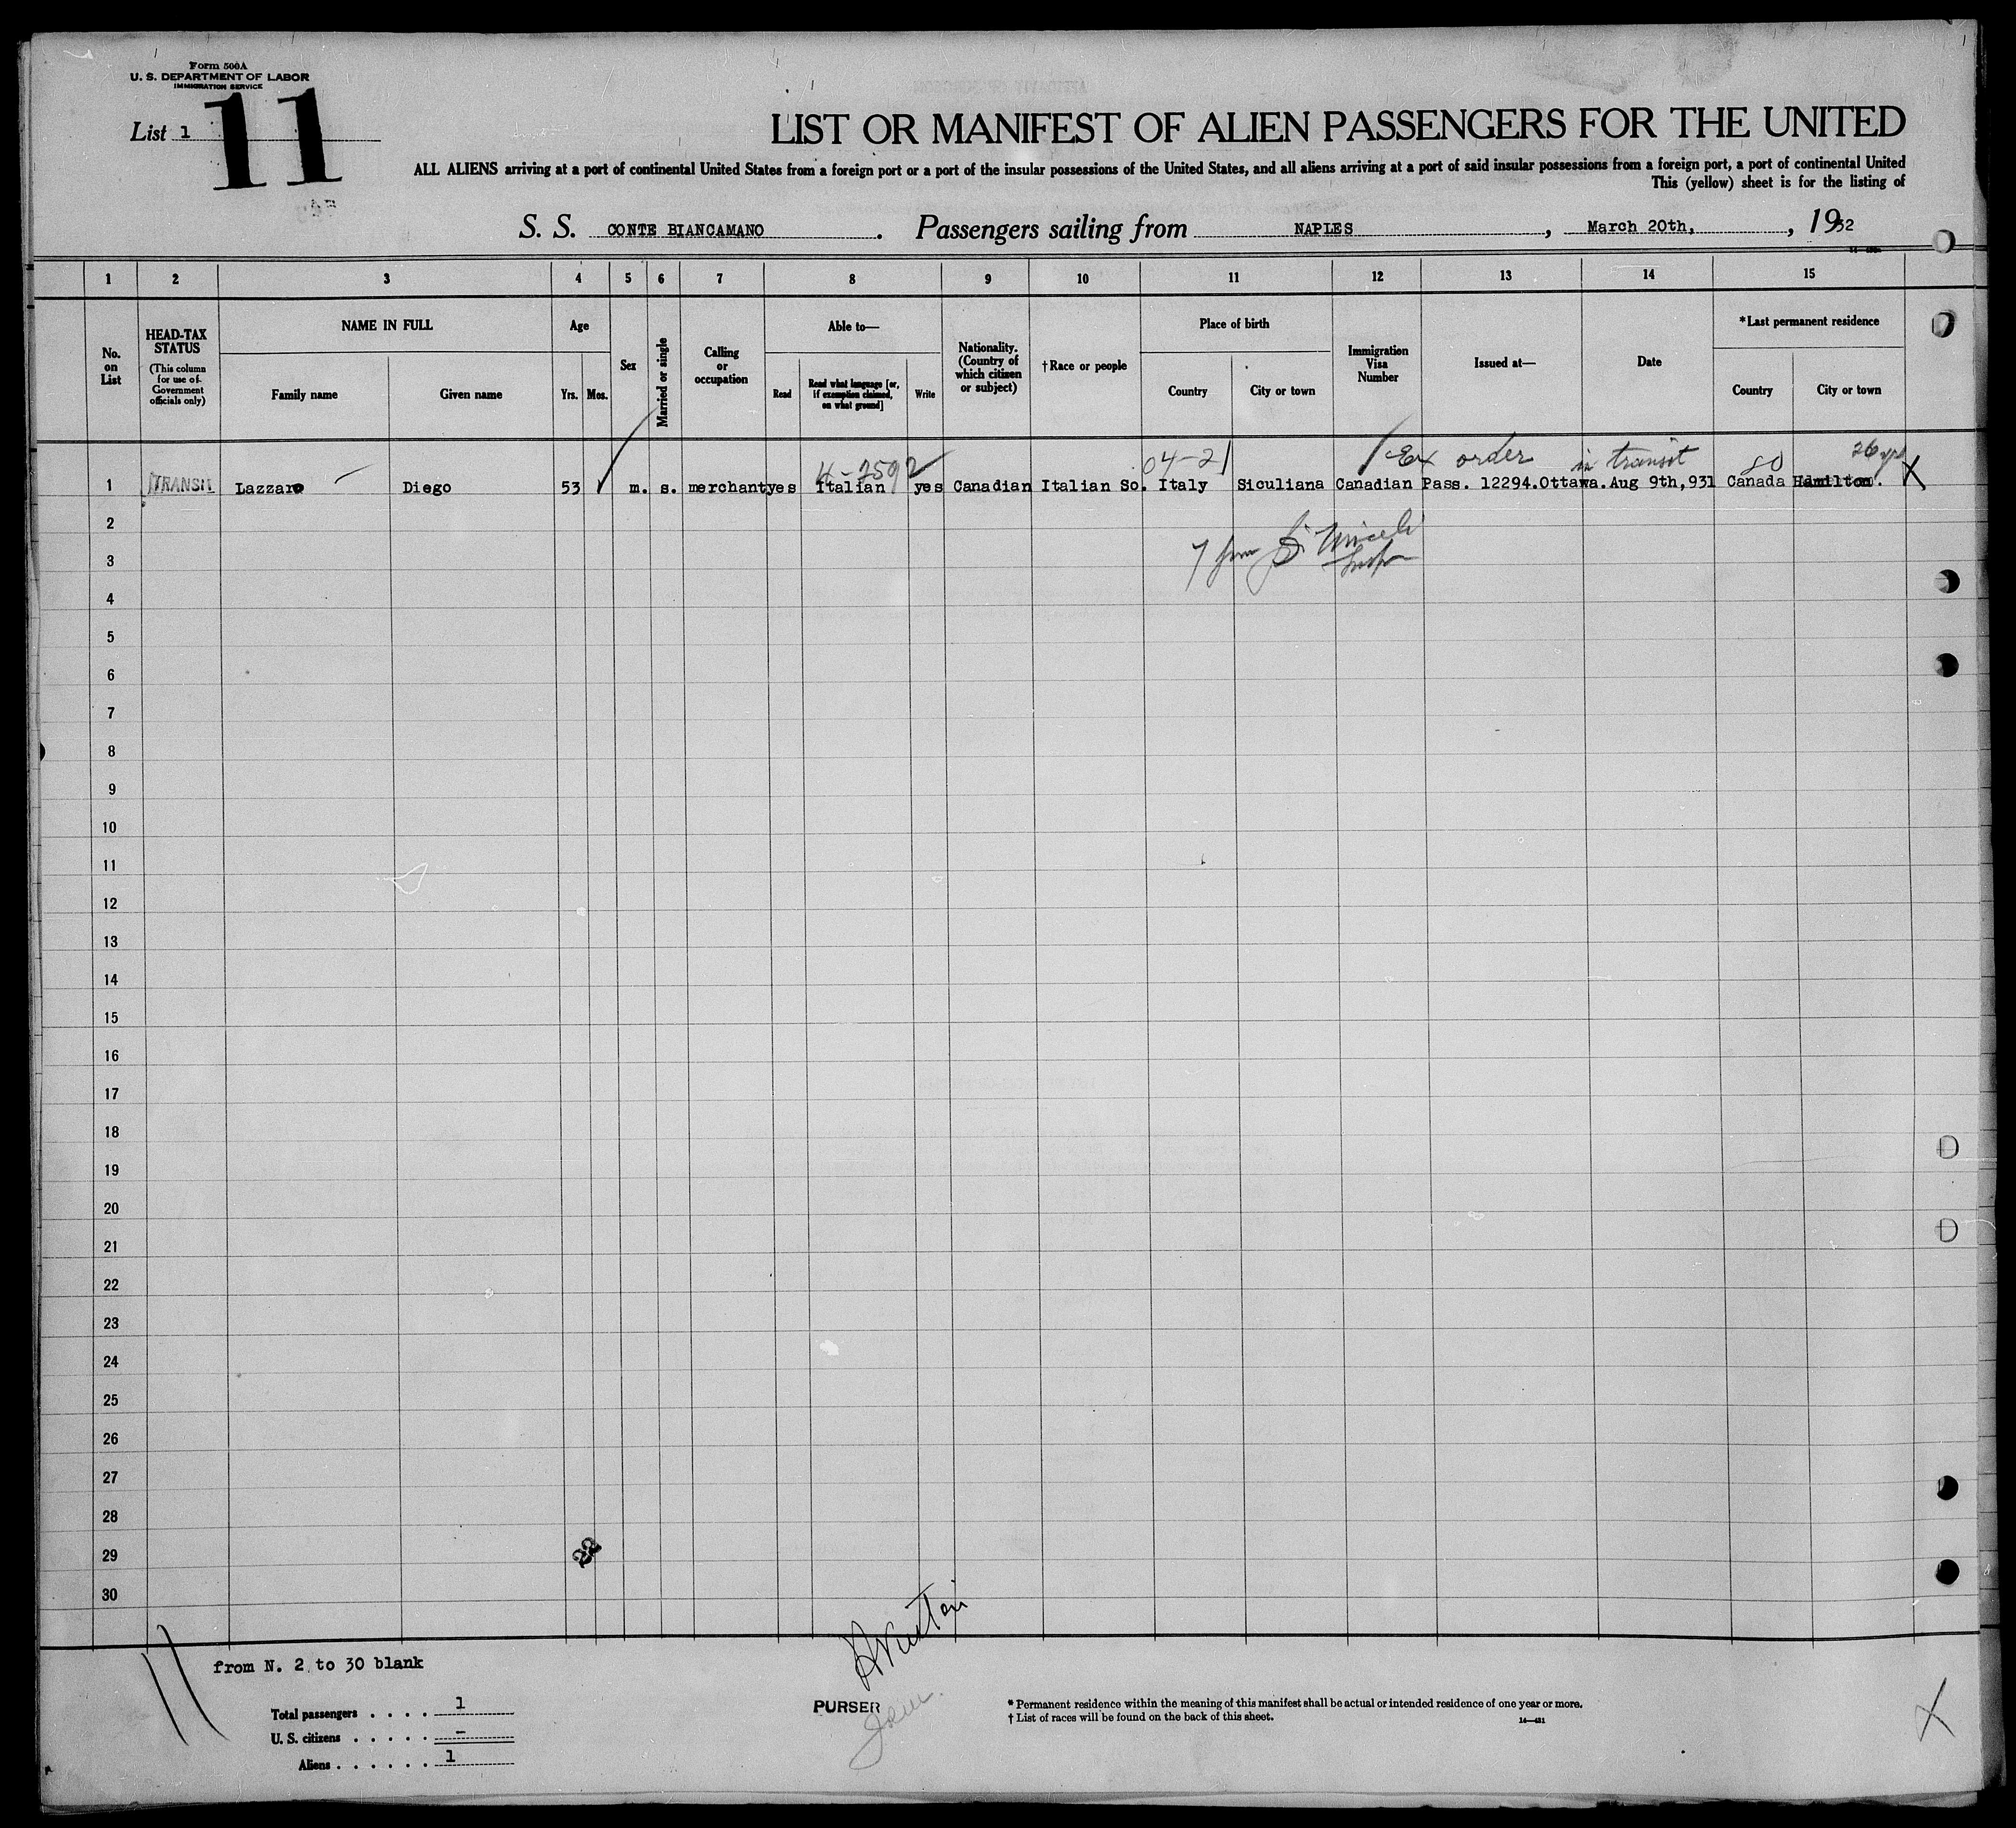 Form 500A
U. S. DEPARTMENT OF LABOR
IMMIGRATION SERVICE
11
List 1
LIST OR MANIFEST OF ALIEN PASSENGERS FOR THE UNITED
ALL ALIENS arriving at a port of continental United States from a foreign port or a port of the insular possessions of the United States, and all aliens arriving at a port of said insular possessions from a foreign port, a port of continental United
This (yellow) sheet is for the listing of
S. S. CONTE BIANCAMANO. Passengers sailing from NAPLES, March 20th, , 1932
1 2 3 4 5 6 7 8 9 10 11 12 13 14 15
No. on List
HEAD-TAX STATUS (This column for use of Government officials only)
NAME IN FULL
Family name
Given name
Age
Yrs. Mos.
Sex
Married or single
Calling or occupation
Able to—
Read
Read what language [or, if exemption claimed, on what ground]
Write
Nationality. (Country of which citizen or subject)
†Race or people
Place of birth
Country
City or town
Immigration Visa Number
Issued at—
Date
*Last permanent residence
Country
City or town
04-21 Ex order in transit 80 26 yrs
1 TRANSIT Lazzaro Diego 53 m. s. merchant yes Italian yes Canadian Italian So. Italy Siculiana Canadian Pass. 12294. Ottawa. Aug 9th, 931 Canada Hamilton. X
2
3
4
5
6
7
8
9
10
11
12
13
14
15
16
17
18
19
20
21
22
23
24
25
26
27
28
29
22
30
from N. 2 to 30 blank
Total passengers . . . . 1
U. S. citizens . . . . . –
Aliens . . . . . . 1
PURSER
* Permanent residence within the meaning of this manifest shall be actual or intended residence of one year or more.
† List of races will be found on the back of this sheet.
14—421
X